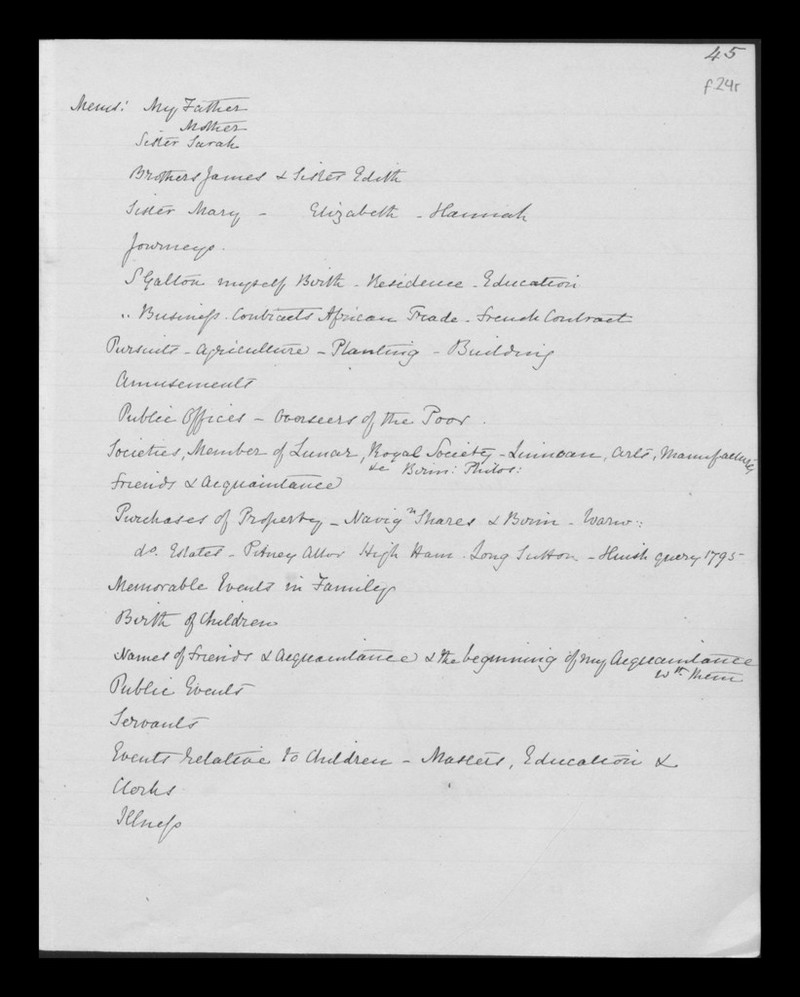 45
f.24r
Mems: My Father
Mother
Sister Sarah
Brothers James & Sister Edith
Sister Mary - Elizabeth - Hannah
Journeys.
S Galton myself Birth - Residence - Education
" Business. Contracts African Trade - French Contract
Pursuits - Agriculture - Planting - Building
Amusements
Public Offices - Overseers of the Poor.
Societies, Member of Lunar, Royal Society - Linnean, Arts, Manufactures
&c Birm: Philos:
Friends & Acquaintance
Purchases of Property - Navign Shares & Birm - Warw::
do. Estates - Pitney Aller High Ham - Long Sutton - Huish query 1795
Memorable Events in Family
Birth of Children
Names of Friends & Acquaintance & the beginning of my Acquaintance
wth them
Public Events
Servants
Events relative to Children - Masters, Education &
Clerks
Illness